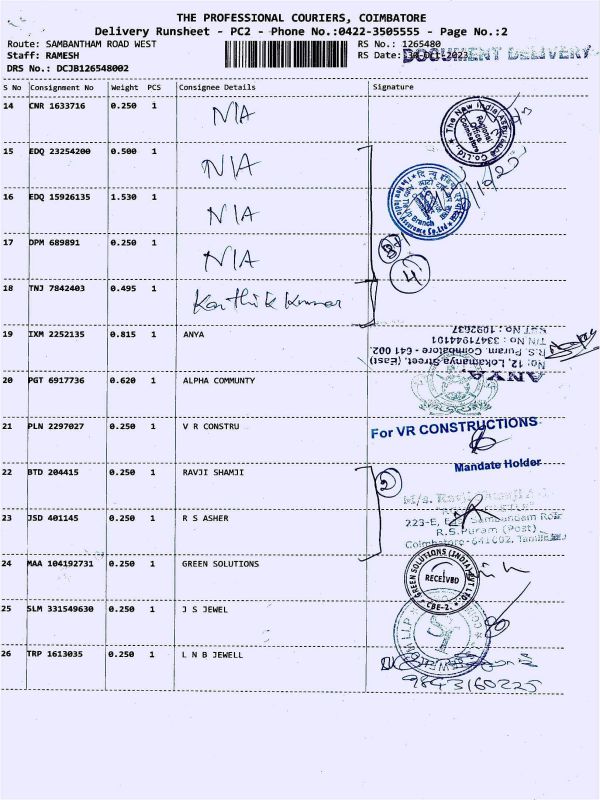 THE PROFESSIONAL COURIERS, COIMBATORE
Delivery Runsheet - PC2 - Phone No.:0422-3505555 - Page No.:2
Route: SAMBANTHAM ROAD WEST RS No.: 1265480
Staff: RAMESH RS Date: 30-Oct-2023
DOCUMENT DELIVERY
DRS No.: DCJB126548002
S No Consignment No Weight PCS Consignee Details Signature
14 CNR 1633716 0.250 1 NIA
The New India Assurance Co. Ltd. Regional Office Coimbatore
15 EDQ 23254200 0.500 1 NIA
16 EDQ 15926135 1.530 1 NIA
17 DPM 689891 0.250 1 NIA
4
18 TNJ 7842403 0.495 1 Karthik Kumar
19 IXM 2252135 0.815 1 ANYA
ANYA.
No: 12, Lokamanya Street, (East)
R.S. Puram Coimbatore - 641 002.
TIN No : 33471944101
CST No : 1092637
20 PGT 6917736 0.620 1 ALPHA COMMUNTY
21 PLN 2297027 0.250 1 V R CONSTRU
For VR CONSTRUCTIONS
Mandate Holder
22 BTD 204415 0.250 1 RAVJI SHAMJI
2
M/s.
23 JSD 401145 0.250 1 R S ASHER
223-E, Sambandam Road
R.S.Puram (Post)
Coimbatore-641002,
24 MAA 104192731 0.250 1 GREEN SOLUTIONS
GREEN SOLUTIONS (INDIA) PVT LTD. RECEIVED CBE-2.
25 SLM 331549630 0.250 1 J S JEWEL
26 TRP 1613035 0.250 1 L N B JEWELL
9843160225